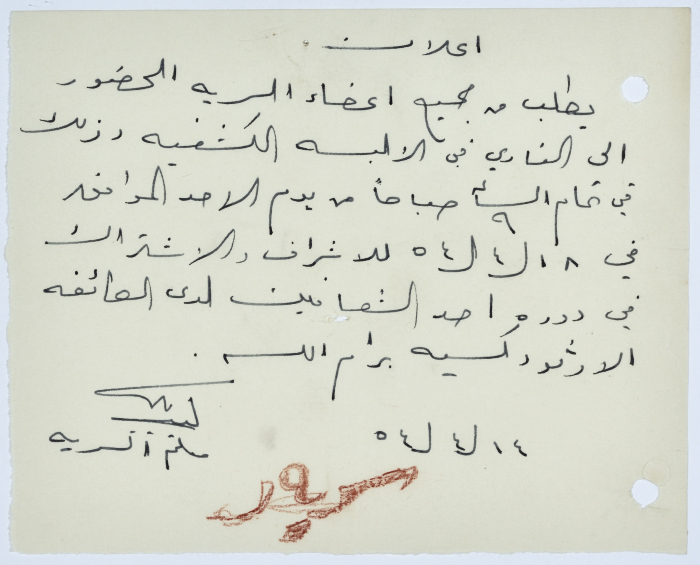 اعلان
يطلب من جميع اعضاء السريه الحضور
الى النادي في الالبسه الكشفيه وذلك
في تمام الساعة ٩ صباحاً من يوم الاحد الموافق
في ١٨/٤/٥٤ للاشراف والاشتراك
في دوره احد الشعانين لدى الطائفه
الارثوذكسيه برام الله .
١٤/٤/٥٤
معتمد السريه